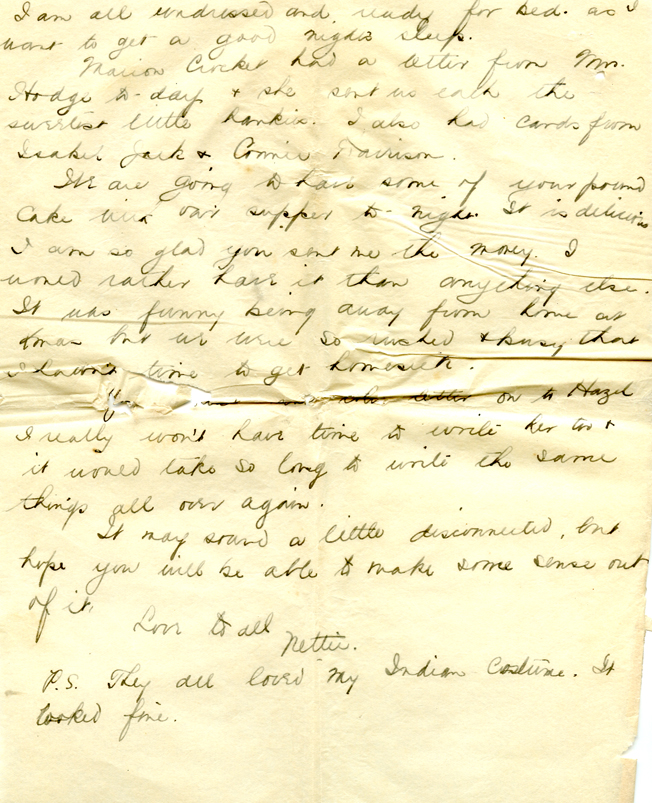 I am all undressed and ready for bed. as I
want to get a good nights sleep.
Marion Crocket had a letter from Mrs.
Hodge to-day & she sent us each the
sweetest little hankie. I also had cards from
Isabel Jack & Connie
We are going to have some of your pound
cake with our supper to-night. It is delicious
I am so glad you sent me the money. I
would rather have it than anything else.
It was funny being away from home at
Xmas but we were so rushed & busy that
I haven't time to get homesick.
letter on to Hazel
I really won't have time to write her too &
it would take so long to write the same
things all over again.
It may sound a little disconnected, but
hope you will be able to make some sense out
of it.
Love to all
Nettie.
P.S. They all loved my Indian Costume. It
looked fine.